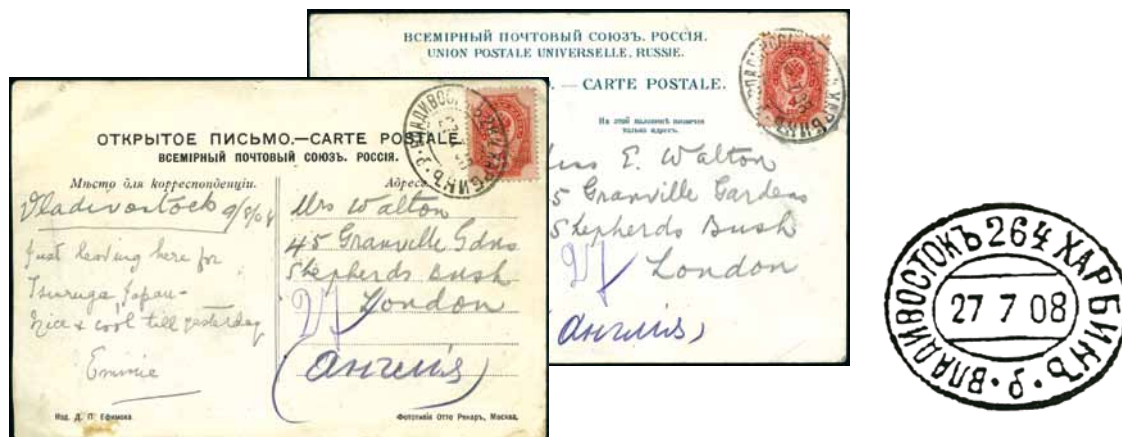 ВСЕМІРНЫЙ ПОЧТОВЫЙ СОЮЗЪ. РОССІЯ.
UNION POSTALE UNIVERSELLE, RUSSIE.
— CARTE POSTALE.
На этой сторонѣ пишется
только адресъ.
E. Walton
5 Granville Gardens
Shepherds Bush
London
(Англія)
ОТКРЫТОЕ ПИСЬМО.—CARTE POSTALE.
ВСЕМІРНЫЙ ПОЧТОВЫЙ СОЮЗЪ. РОССІЯ.
Мѣсто для корреспонденціи.
Vladivostock 9/8/08
Just leaving here for
Tsuruga Japan-
Nice & cool till yesterday
Emmie
Адресъ
Mrs Walton
45 Granville Gdns
Shepherds Bush
London
(Англія)
Изд. Д. П. Ефимова
Фототипія Отто Ренаръ, Москва.
ВЛАДИВОСТОКЪ 264 ХАРБИНЪ
27 7 08